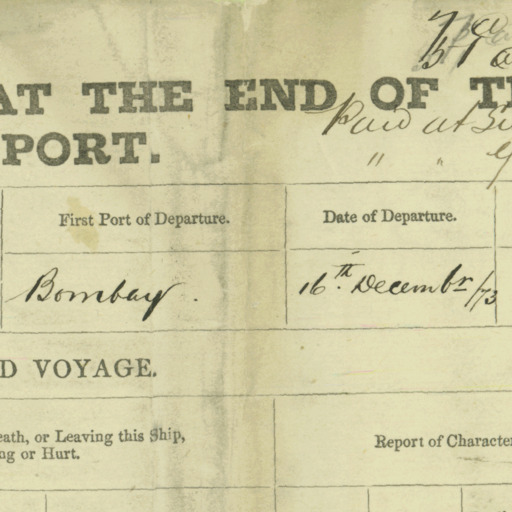 AT THE END OF T
Paid at
PORT.
" "
First Port of Departure.
Date of Departure.
Bombay.
16th. Decembr/73
D VOYAGE.
eath, or Leaving this Ship,
ng or Hurt.
Report of Character